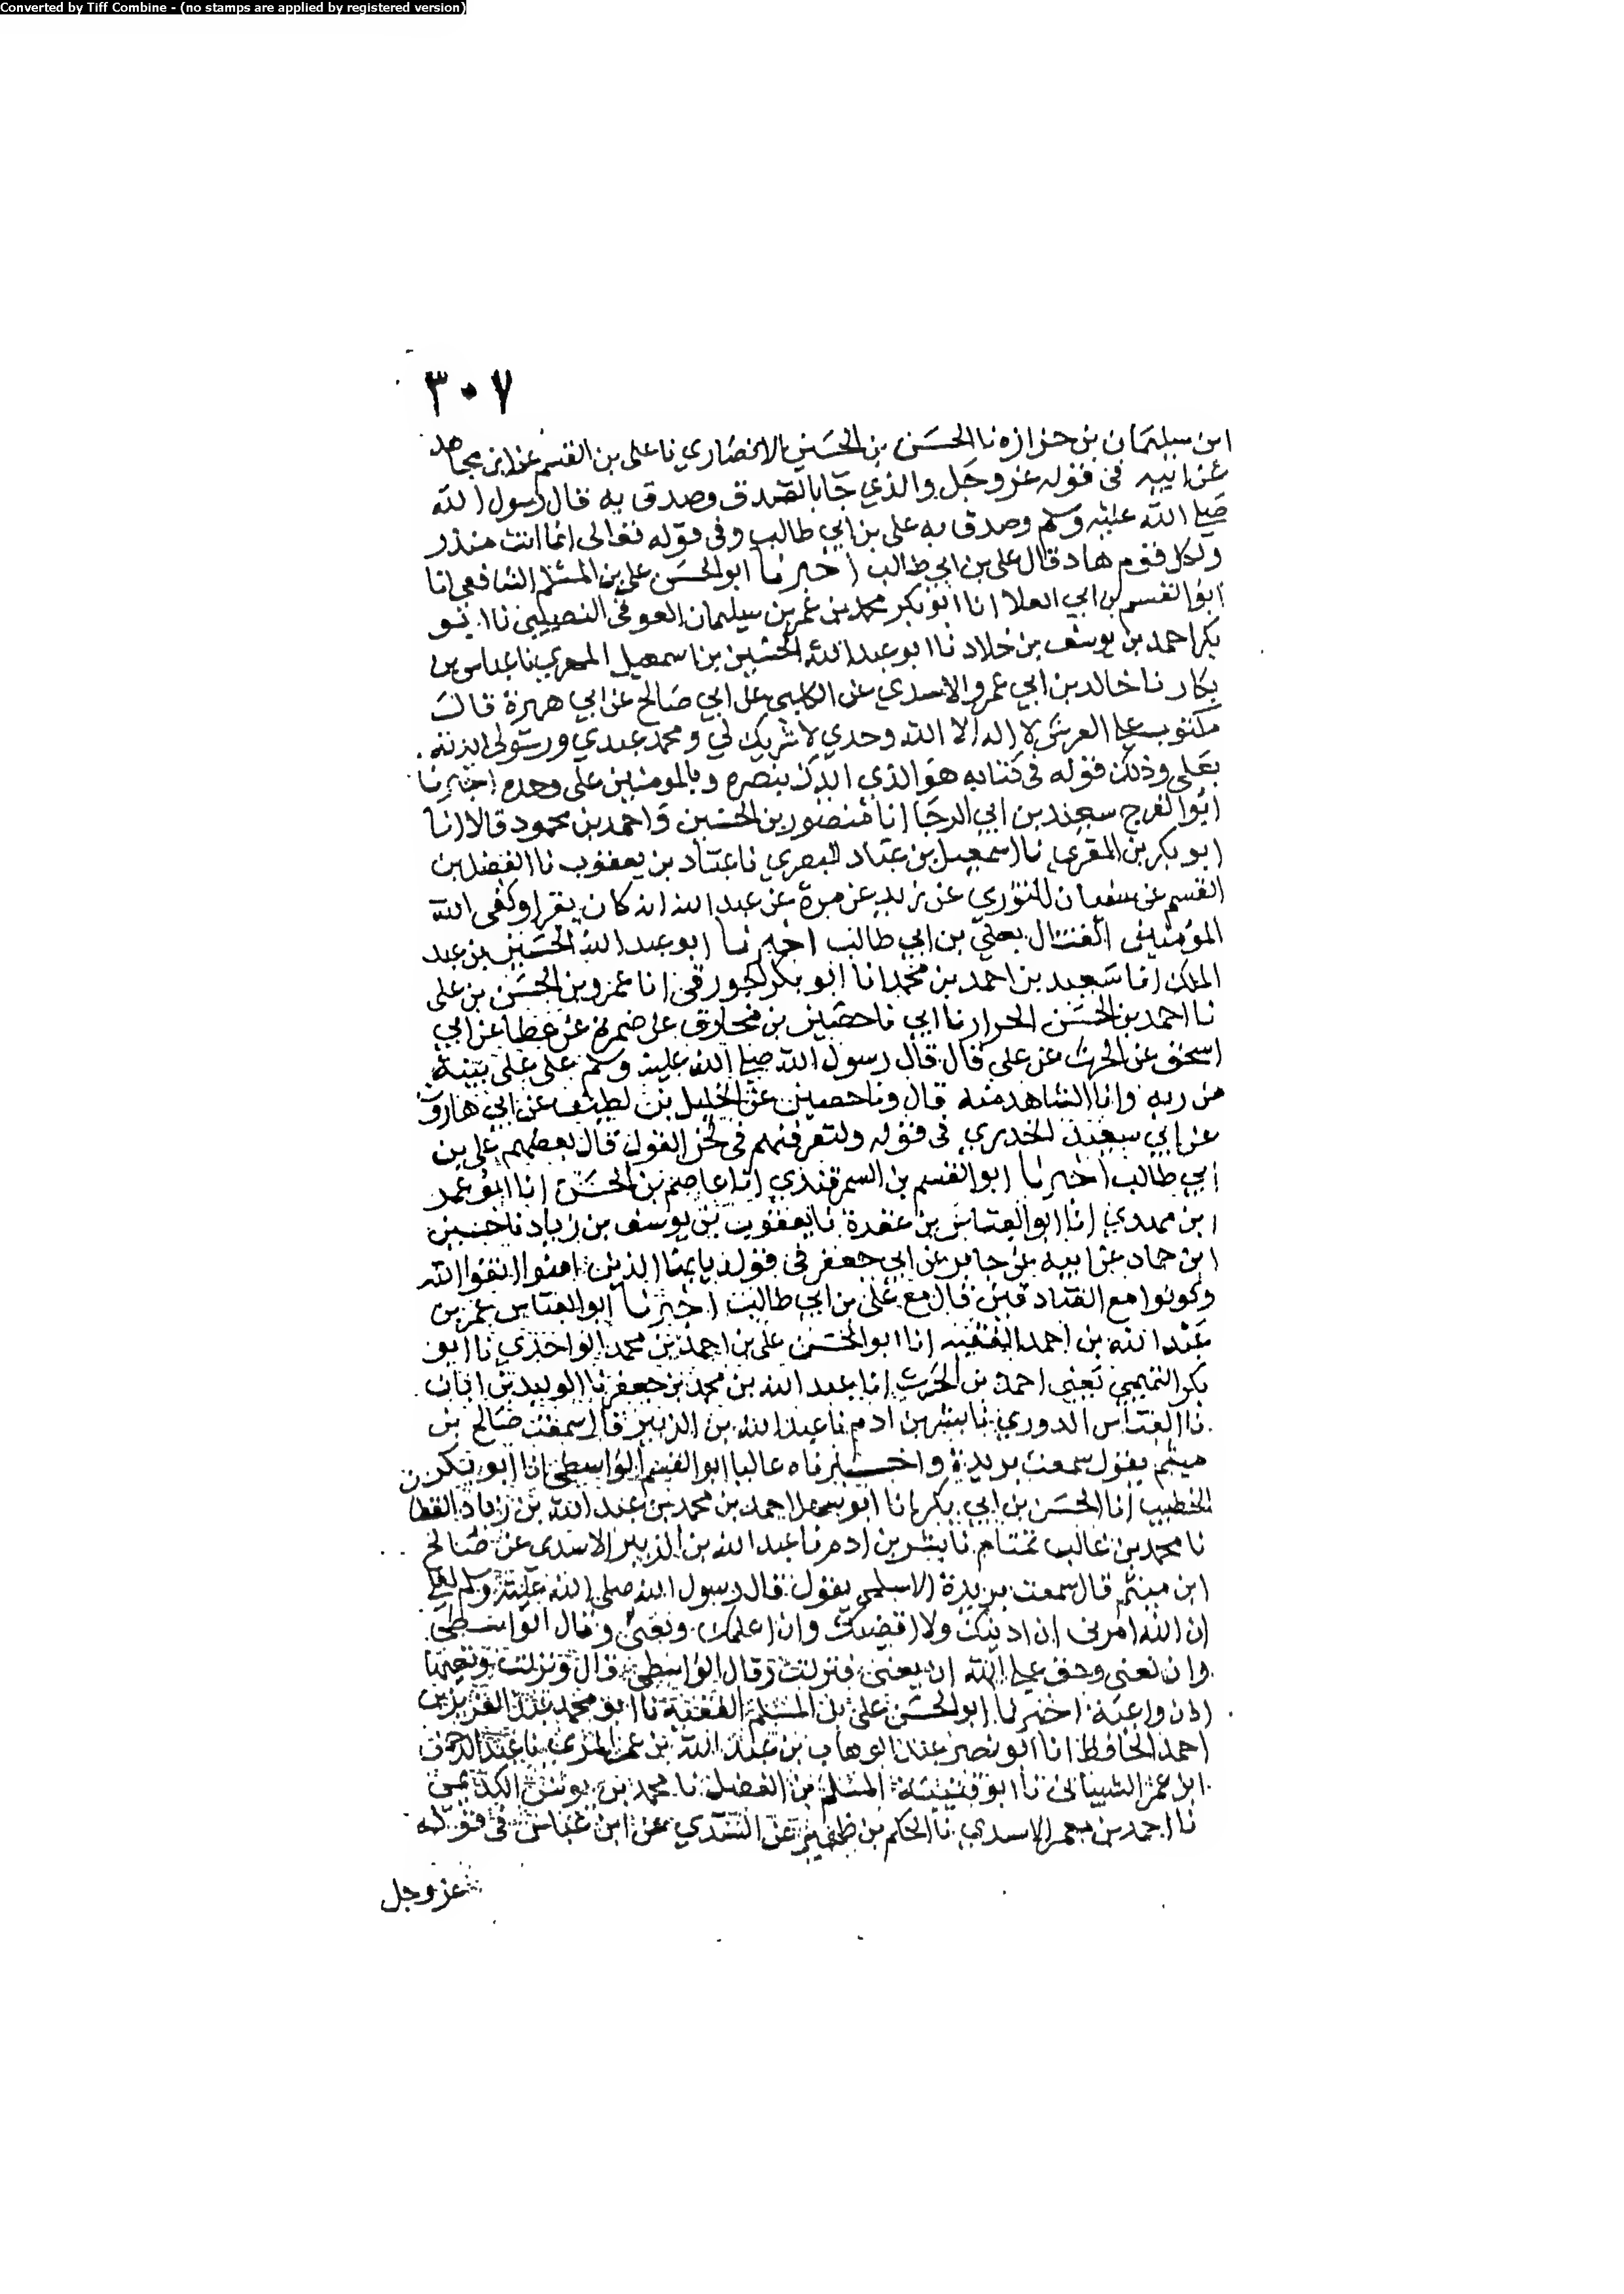 Converted by Tiff Combine - (no stamps are applied by registered version)
٣٠٧
ابن سليمان بن حزازه نا الحسن بن الحسين الانصاري نا على بن القسم عن ابن مجاهد
عن ابيه في قوله عز وجل والذي جا بالصدق وصدق به قال رسول الله
صلى الله عليه وسلم وصدق به على بن ابي طالب وفى قوله تعالى انما انت منذر
ولكل قوم هاد قال على بن ابي طالب اخبرنا ابو الحسن على بن المسلم الشافعى انا
ابو القسم بن ابي العلا انا ابو بكر محمد بن عمر بن سليمان العوفى النصيبي نا ابو
بكر احمد بن يوسف بن خلاد نا ابو عبد الله الحسين بن اسمعيل المهري نا عباس بن
بكار نا خالد بن ابي عمرو الاسدي عن الكلبى عن ابي صالح عن ابي هريرة قال
مكتوب على العرش لا اله الا الله وحدي لا شريك لي ومحمد عبدي ورسولى ايدته
بعلى وذلك قوله فى كتابه هو الذي ايدك بنصره وبالمومنين على وحده اخبرنا
ابو الفرج سعيد بن ابي الرجا انا منصور بن الحسين واحمد بن محمود قالا انا
ابو بكر بن المقري نا اسمعيل بن عباد البصري نا عباد بن يعقوب نا الفضل بن
القسم عن سفيان الثوري عن زبيد عن مرة عن عبد الله انه كان يقرا وكفى الله
المؤمنين القتال بعلي بن ابي طالب اخبرنا ابو عبد الله الحسين بن عبد
الملك انا سعيد بن احمد بن محمد انا ابو بكر الجورقي انا عمرو بن الحسن بن على
نا احمد بن الحسن الحرار نا ابي نا حصين بن مخارق عن ضمرة عن عطا عن ابي
اسحق عن الحرث عن على قال قال رسول الله صلى الله عليه وسلم على على بينة
من ربه وانا الشاهد منه قال ونا حصين عن الخليل بن لطيف عن ابي هارون
عن ابي سعيد الخدري فى قوله ولتعرفنهم فى لحن القول قال ببعضهم على بن
ابي طالب اخبرنا ابو القسم بن السمرقندي انا عاصم بن الحسن انا ابو عمر
ابن مهدي انا ابو العباس بن عقدة نا يعقوب بن يوسف بن زياد نا حسين
ابن حماد عن ابيه عن جابر عن ابي جعفر فى قوله يا يها الذين امنوا اتقوا الله
وكونوا مع الصادقين قال مع على بن ابي طالب اخبرنا ابو العباس عمر بن
عبد الله بن احمد الفقيه انا ابو الحسن على بن احمد بن محمد الواحدي نا ابو
بكر التميمي يعنى احمد بن الحرث انا عبد الله بن محمد بن جعفر نا الوليد بن ابان
نا العباس الدوري نا بشر بن ادم نا عبد الله بن الزبير قال سمعت صالح بن
ميثم يقول سمعت بريدة واخبرناه عاليا ابو القسم الواسطي انا ابو بكر
الخطيب انا الحسن بن ابي بكر انا ابو سهل احمد بن محمد بن عبد الله بن زياد القطان
نا محمد بن غالب تمتام نا بشر بن ادم نا عبد الله بن الزبير الاسدى عن صالح
ابن ميثم قال سمعت بريدة الاسلمي يقول قال رسول الله صلى الله عليه وسلم لعلى
ان الله امرنى ان ادنيك ولا اقصيك وان اعلمك وتعى وقال الواسطى
وان تعى وحق على الله ان تعى فنزلت وقال الواسطى قال ونزلت وتعيها
اذن واعية اخبرنا ابو الحسن على بن المسلم الفقيه نا ابو محمد عبد العزيز بن
احمد الحافظ انا ابو نصر عبد الوهاب بن عبد الله بن عمر المري نا عبد الرحمن
ابن عمر الشيبانى نا ابو قتيبة المسلم بن الفضل نا محمد بن يونس الكديمى
نا احمد بن معمر الاسدي نا الحكم بن ظهير عن السدي عن ابن عباس فى قوله
عز وجل